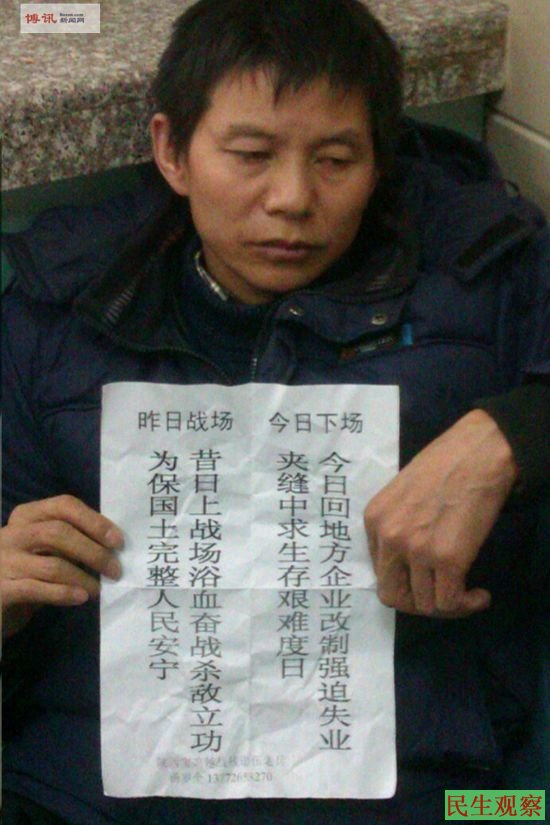 博讯
Boxun.com
新闻网
昨日战场 今日下场
昔日上战场浴血奋战杀敌立功
为保国土完整人民安宁
今日回地方企业改制强迫失业
夹缝中求生存艰难度日
民生观察